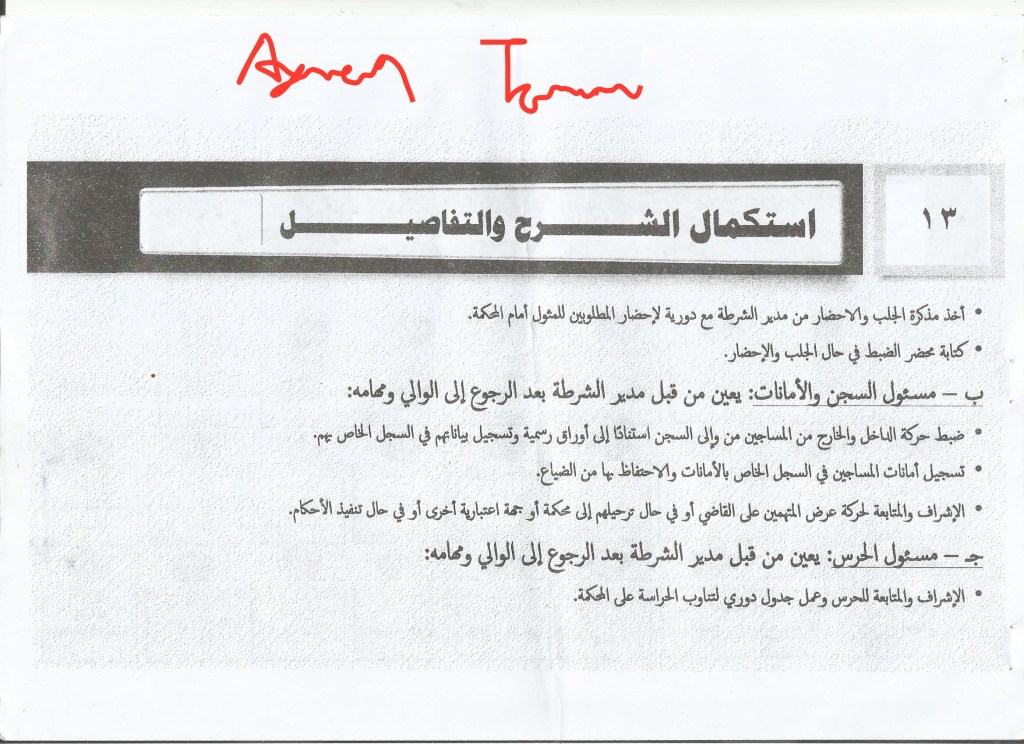 ١٣
استكمال الشرح والتفاصيل
• أخذ مذكرة الجلب والاحضار من مدير الشرطة مع دورية لإحضار المطلوبين للمثول أمام المحكمة.
• كتابة محضر الضبط في حال الجلب والإحضار.
ب – مسئول السجن والأمانات: يعين من قبل مدير الشرطة بعد الرجوع إلى الوالي ومهامه:
• ضبط حركة الداخل والخارج من المساجين من وإلى السجن استنادًا إلى أوراق رسمية وتسجيل بياناتهم في السجل الخاص بهم.
• تسجيل أمانات المساجين في السجل الخاص بالأمانات والاحتفاظ بها من الضياع.
• الإشراف والمتابعة لحركة عرض المتهمين على القاضي أو في حال ترحيلهم إلى محكمة أو جهة اعتبارية أخرى أو في حال تنفيذ الأحكام.
جـ – مسئول الحرس: يعين من قبل مدير الشرطة بعد الرجوع إلى الوالي ومهامه:
• الإشراف والمتابعة للحرس وعمل جدول دوري لتناوب الحراسة على المحكمة.